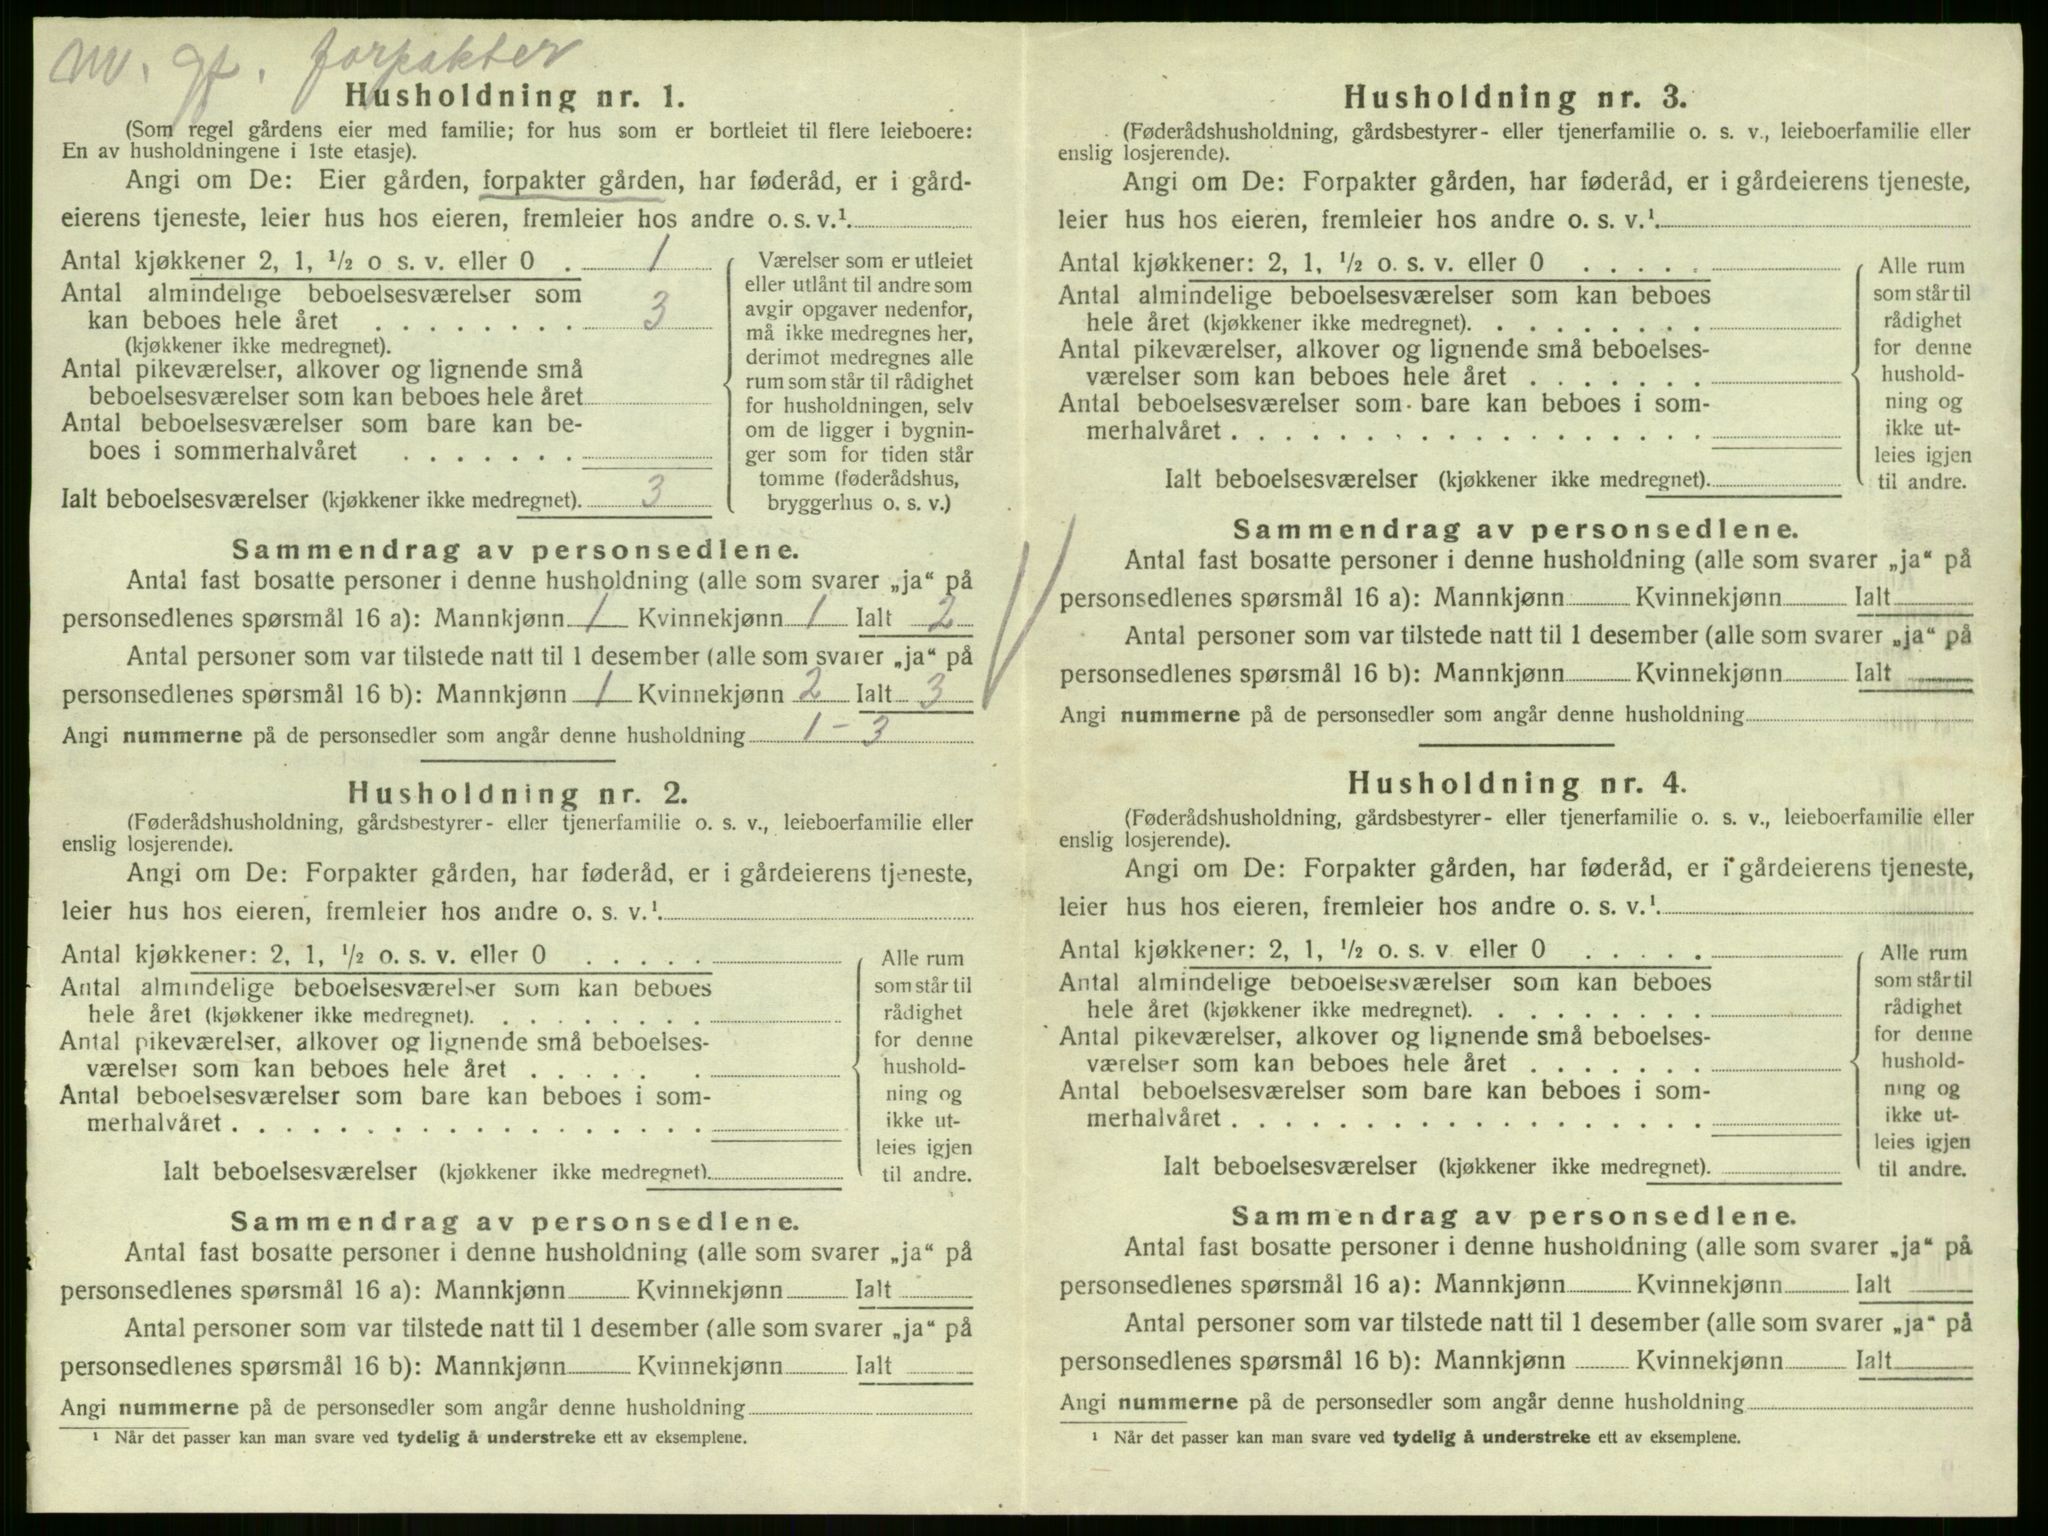 forpakter
Husholdning nr. 1.
(Som regel gårdens eier med familie; for hus som er bortleiet til flere leieboere:
En av husholdningene i 1ste etasje).
Angi om De: Eier gården, forpakter gården, har føderåd, er i gård-
eierens tjeneste, leier hus hos eieren, fremleier hos andre o. s. v.¹
Antal kjøkkener 2, 1, ½ o s. v. eller 0 . 1
Antal almindelige beboelsesværelser som
kan beboes hele året . . . . . . . . 3
(kjøkkener ikke medregnet).
Antal pikeværelser, alkover og lignende små
beboelsesværelser som kan beboes hele året
Antal beboelsesværelser som bare kan be-
boes i sommerhalvåret . . . . . . .
Ialt beboelsesværelser (kjøkkener ikke medregnet). 3
Værelser som er utleiet
eller utlånt til andre som
avgir opgaver nedenfor,
må ikke medregnes her,
derimot medregnes alle
rum som står til rådighet
for husholdningen, selv
om de ligger i bygnin-
ger som for tiden står
tomme (føderådshus,
bryggerhus o. s. v.)
Sammendrag av personsedlene.
Antal fast bosatte personer i denne husholdning (alle som svarer „ja“ på
personsedlenes spørsmål 16 a): Mannkjønn 1 Kvinnekjønn 1 Ialt 2
Antal personer som var tilstede natt til 1 desember (alle som svarer „ja“ på
personsedlenes spørsmål 16 b): Mannkjønn 1 Kvinnekjønn 2 Ialt 3
Angi nummerne på de personsedler som angår denne husholdning 1 - 3
Husholdning nr. 2.
(Føderådshusholdning, gårdsbestyrer- eller tjenerfamilie o. s. v., leieboerfamilie eller
enslig losjerende).
Angi om De: Forpakter gården, har føderåd, er i gårdeierens tjeneste,
leier hus hos eieren, fremleier hos andre o. s. v.¹
Antal kjøkkener: 2, 1, ½ o. s. v. eller 0 . . . . .
Antal almindelige beboelsesværelser som kan beboes
hele året (kjøkkener ikke medregnet). . . . . . . . .
Antal pikeværelser, alkover og lignende små beboelses-
værelser som kan beboes hele året . . . . . .
Antal beboelsesværelser som bare kan beboes i som-
merhalvåret . . . . . . . . . . . . . . . . . .
Ialt beboelsesværelser (kjøkkener ikke medregnet).
Alle rum
som står til
rådighet
for denne
hushold-
ning og
ikke ut-
leies igjen
til andre.
Sammendrag av personsedlene.
Antal fast bosatte personer i denne husholdning (alle som svarer „ja“ på
personsedlenes spørsmål 16 a): Mannkjønn Kvinnekjønn Ialt
Antal personer som var tilstede natt til 1 desember (alle som svarer „ja“ på
personsedlenes spørsmål 16 b): Mannkjønn Kvinnekjønn Ialt
Angi nummerne på de personsedler som angår denne husholdning
¹ Når det passer kan man svare ved tydelig å understreke ett av eksemplene.
Husholdning nr. 3.
(Føderådshusholdning, gårdsbestyrer- eller tjenerfamilie o. s. v., leieboerfamilie eller
enslig losjerende).
Angi om De: Forpakter gården, har føderåd, er i gårdeierens tjeneste,
leier hus hos eieren, fremleier hos andre o. s. v.¹
Antal kjøkkener: 2, 1, ½ o. s. v. eller 0 . . . . .
Antal almindelige beboelsesværelser som kan beboes
hele året (kjøkkener ikke medregnet). . . . . . . . .
Antal pikeværelser, alkover og lignende små beboelses-
værelser som kan beboes hele året . . . . . . .
Antal beboelsesværelser som bare kan beboes i som-
merhalvåret . . . . . . . . . . . . . . . . . .
Ialt beboelsesværelser (kjøkkener ikke medregnet).
Alle rum
som står til
rådighet
for denne
hushold-
ning og
ikke ut-
leies igjen
til andre.
Sammendrag av personsedlene.
Antal fast bosatte personer i denne husholdning (alle som svarer „ja“ på
personsedlenes spørsmål 16 a): Mannkjønn Kvinnekjønn Ialt
Antal personer som var tilstede natt til 1 desember (alle som svarer „ja“ på
personsedlenes spørsmål 16 b): Mannkjønn Kvinnekjønn Ialt
Angi nummerne på de personsedler som angår denne husholdning
Husholdning nr. 4.
(Føderådshusholdning, gårdsbestyrer- eller tjenerfamilie o. s. v., leieboerfamilie eller
enslig losjerende).
Angi om De: Forpakter gården, har føderåd, er i gårdeierens tjeneste,
leier hus hos eieren, fremleier hos andre o. s. v.¹
Antal kjøkkener: 2, 1, ½ o. s. v. eller 0 . . . . .
Antal almindelige beboelsesværelser som kan beboes
hele året (kjøkkener ikke medregnet). . . . . . . . .
Antal pikeværelser, alkover og lignende små beboelses-
værelser som kan beboes hele året . . . . . . .
Antal beboelsesværelser som bare kan beboes i som-
merhalvåret . . . . . . . . . . . . . . . . . .
Ialt beboelsesværelser (kjøkkener ikke medregnet).
Alle rum
som står til
rådighet
for denne
hushold-
ning og
ikke ut-
leies igjen
til andre.
Sammendrag av personsedlene.
Antal fast bosatte personer i denne husholdning (alle som svarer „ja“ på
personsedlenes spørsmål 16 a): Mannkjønn Kvinnekjønn Ialt
Antal personer som var tilstede natt til 1 desember (alle som svarer „ja“ på
personsedlenes spørsmål 16 b): Mannkjønn Kvinnekjønn Ialt
Angi nummerne på de personsedler som angår denne husholdning
¹ Når det passer kan man svare ved tydelig å understreke ett av eksemplene.